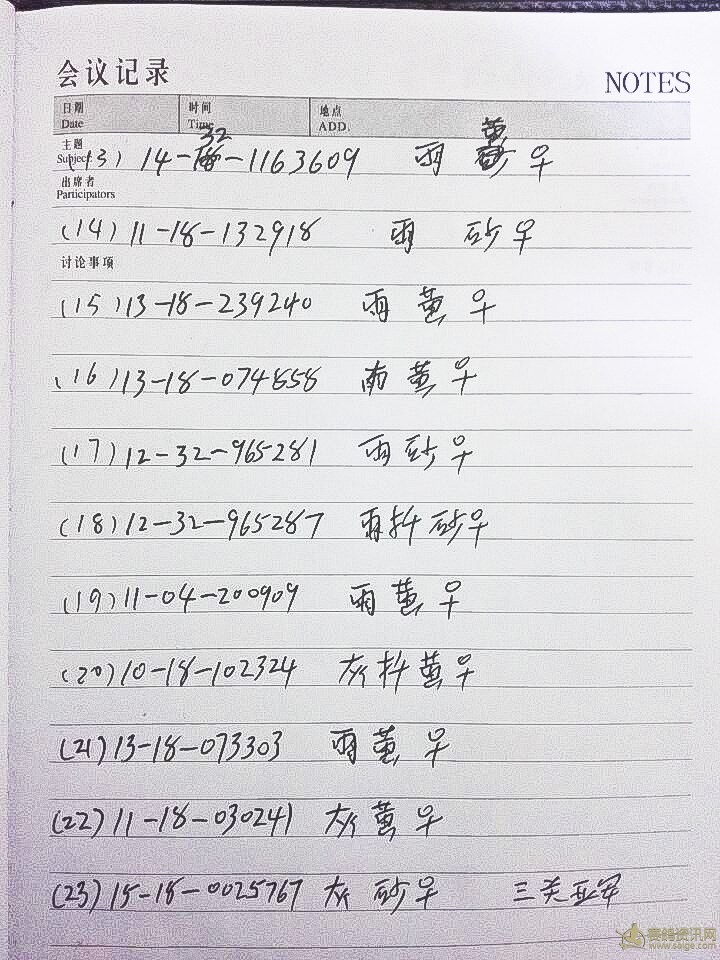 会议记录
NOTES
日期 Date 时间 Time 地点 ADD.
主题 Subject:
(13) 14-32-1163609 雨 黄 ♀
出席者 Participators
(14) 11-18-132918 雨 砂 ♀
讨论事项
(15) 13-18-239240 雨 黄 ♀
(16) 13-18-074858 雨 黄 ♀
(17) 12-32-965281 雨 砂 ♀
(18) 12-32-965287 雨抖 砂 ♀
(19) 11-04-200909 雨 黄 ♀
(20) 10-18-102324 灰 抖 黄 ♀
(21) 13-18-073303 雨 黄 ♀
(22) 11-18-030241 灰 黄 ♀
(23) 15-18-0025767 灰 砂 ♀ 三关亚军
赛鸽资讯网
www.saige.com